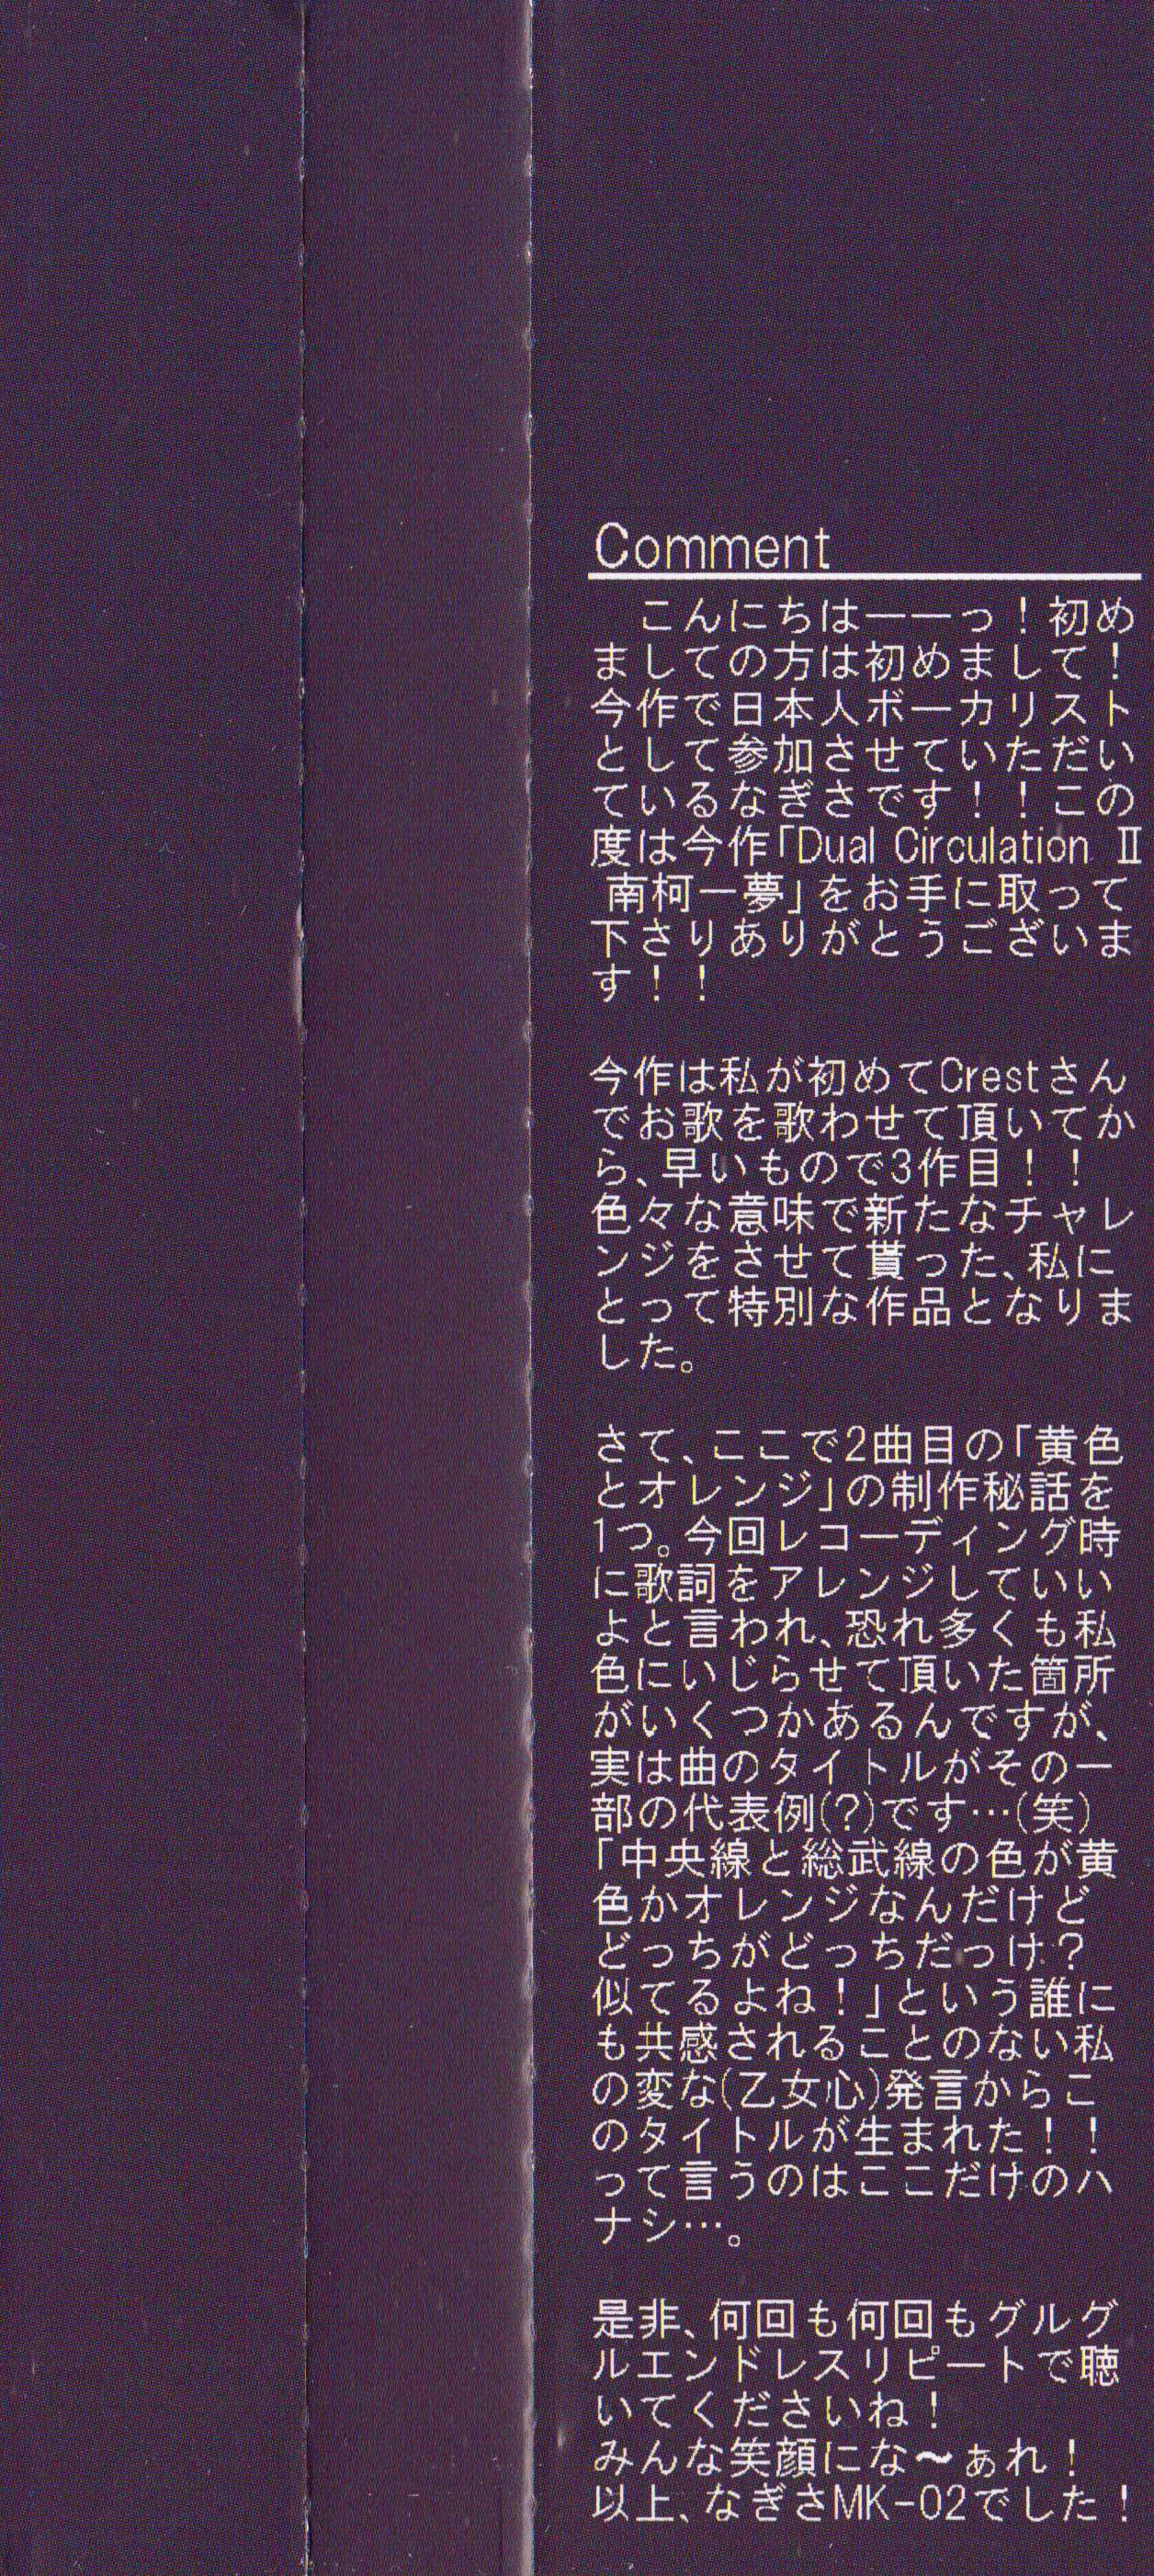 Comment
こんにちは――っ！初め
ましての方は初めまして！
今作で日本人ボーカリスト
として参加させていただい
ているなぎさです！！この
度は今作「Dual Circulation Ⅱ
南柯一夢」をお手に取って
下さりありがとうございま
す！！
今作は私が初めてCrestさん
でお歌を歌わせて頂いてか
ら、早いもので3作目！！
色々な意味で新たなチャレ
ンジをさせて貰った、私に
とって特別な作品となりま
した。
さて、ここで2曲目の「黄色
とオレンジ」の制作秘話を
1つ。今回レコーディング時
に歌詞をアレンジしていい
よと言われ、恐れ多くも私
色にいじらせて頂いた箇所
がいくつかあるんですが、
実は曲のタイトルがその一
部の代表例(?)です…(笑)
「中央線と総武線の色が黄
色かオレンジなんだけど
どっちがどっちだっけ？
似てるよね！」という誰に
も共感されることのない私
の変な(乙女心)発言からこ
のタイトルが生まれた！！
って言うのはここだけのハ
ナシ…。
是非、何回も何回もグルグ
ルエンドレスリピートで聴
いてくださいね！
みんな笑顔にな～ぁれ！
以上、なぎさMK-02でした！